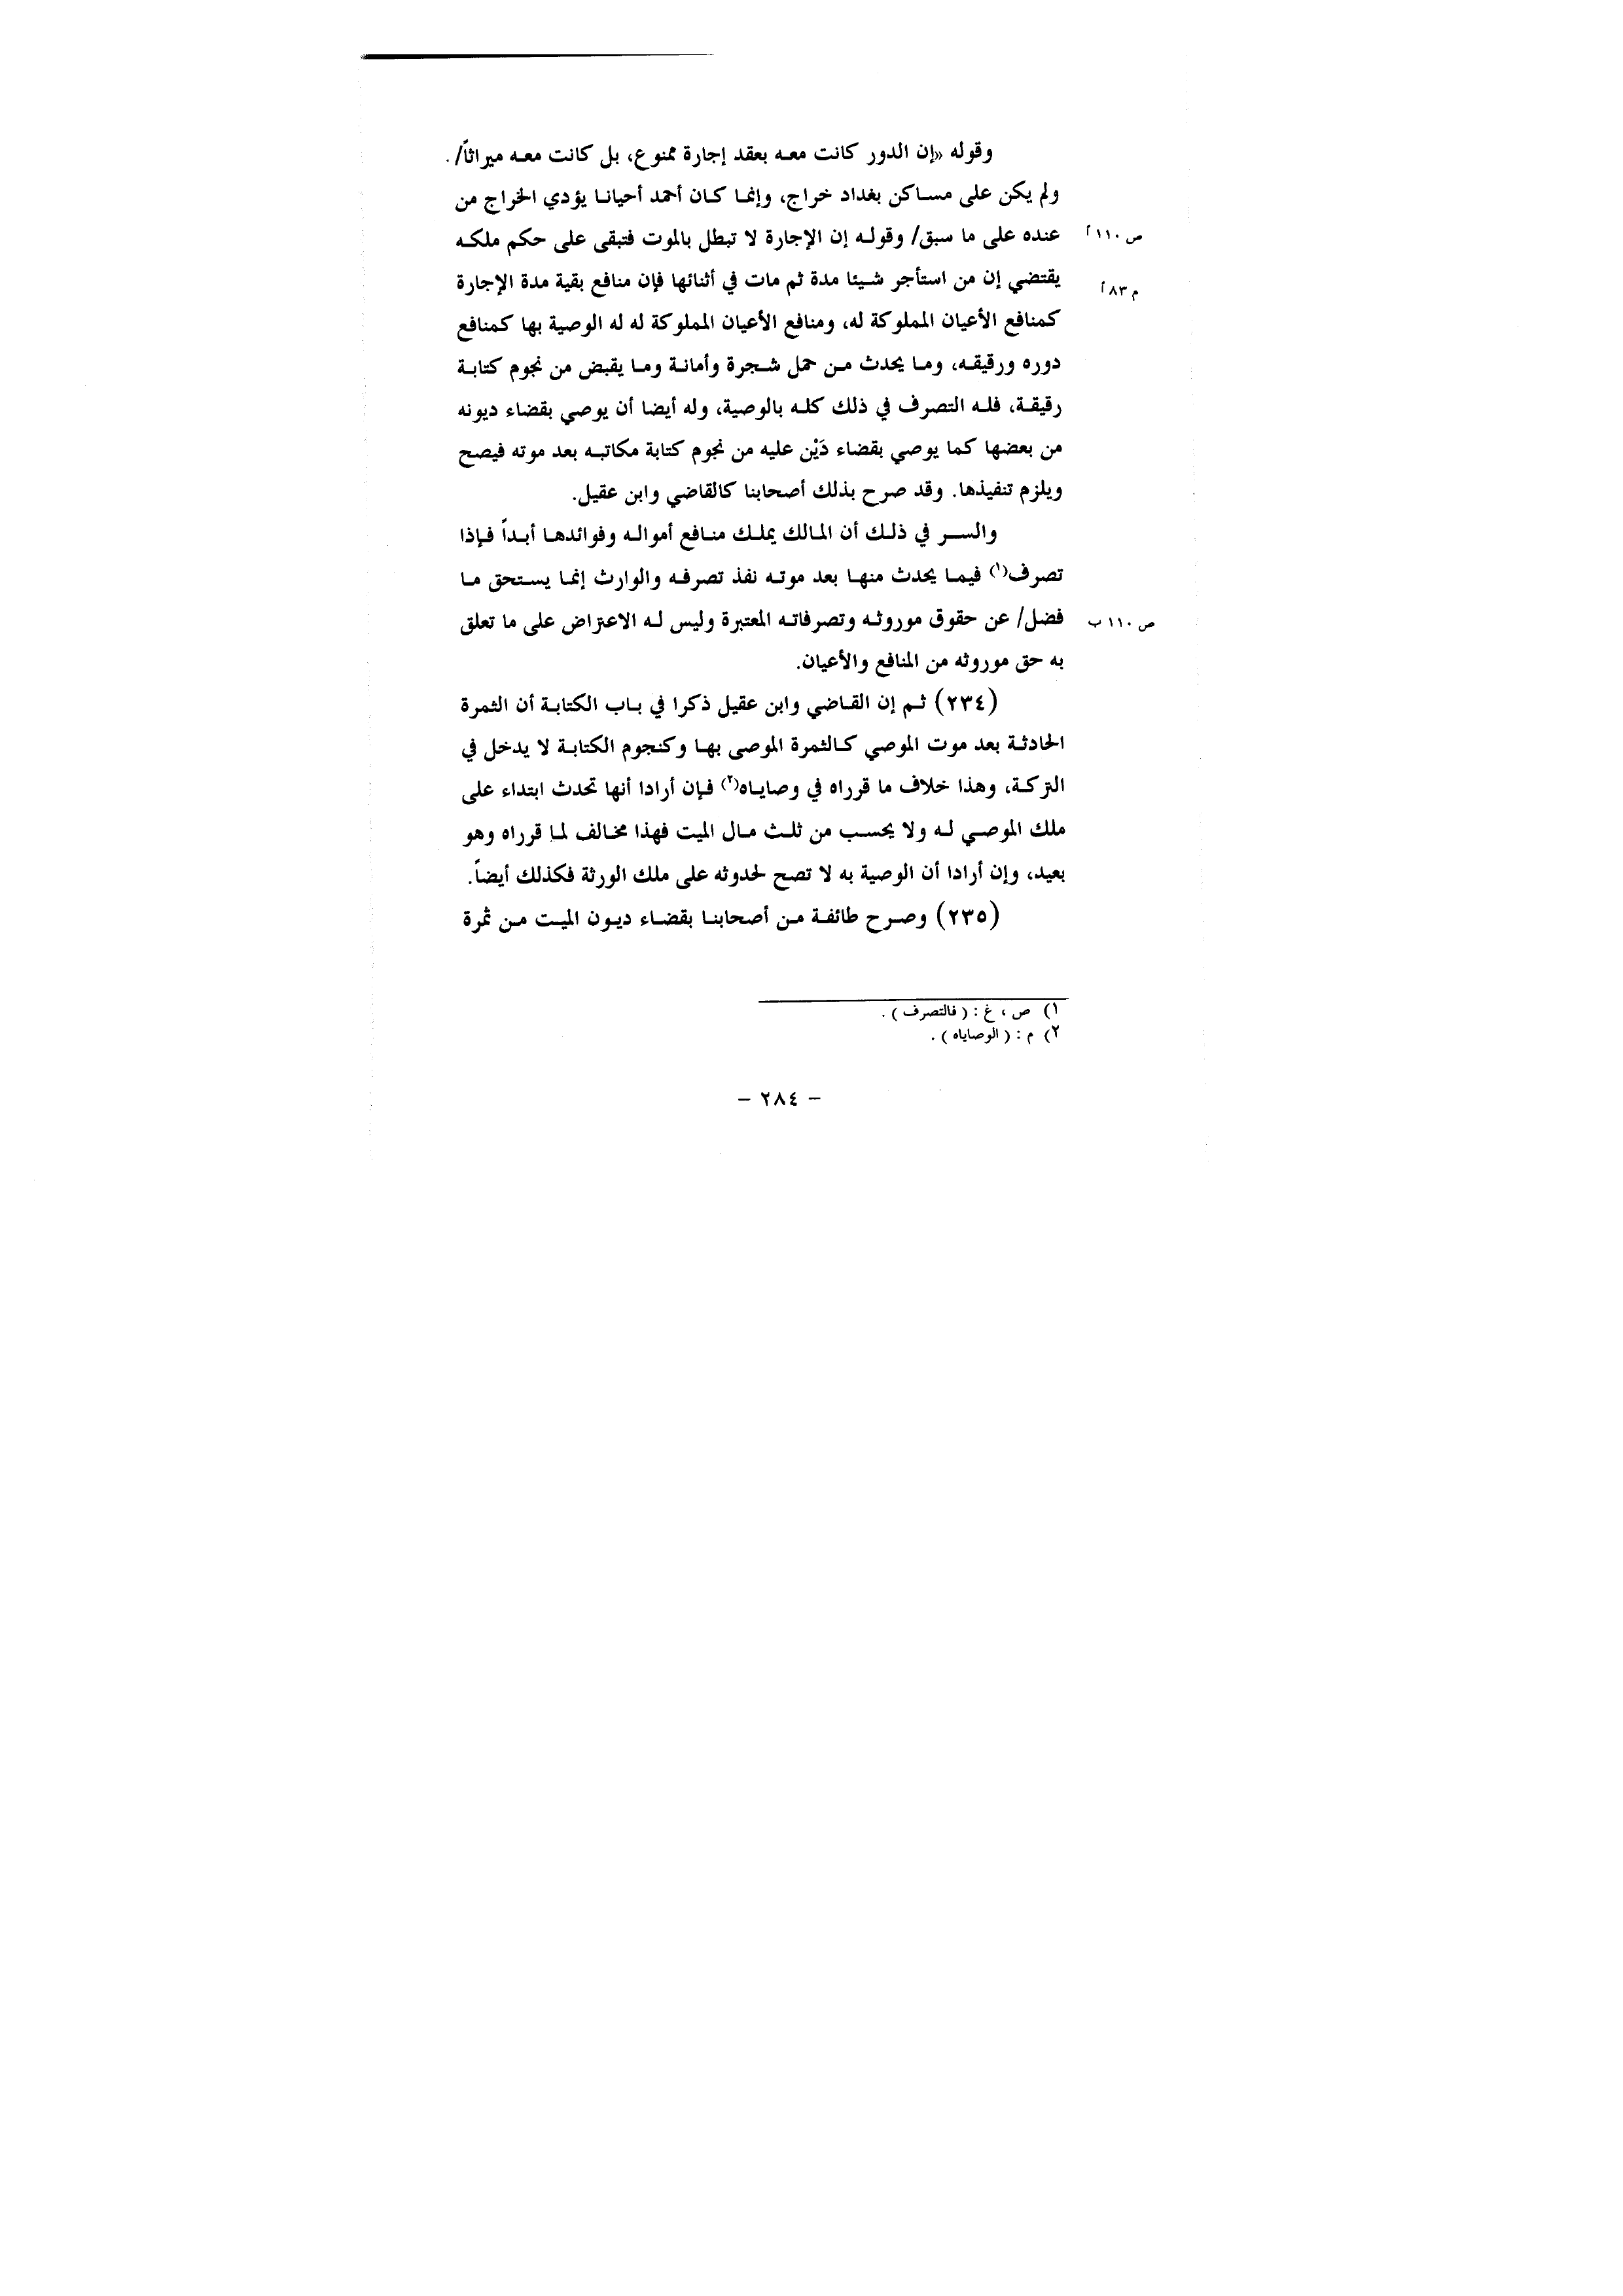 وقوله «إن الدور كانت معه بعقد إجارة ممنوع، بل كانت معه ميراثاً/.
ولم يكن على مساكن بغداد خراج، وإنما كان أحمد أحيانا يؤدي الخراج من
عنده على ما سبق/ وقوله إن الإجارة لا تبطل بالموت فتبقى على حكم ملكه
ص ١١٠ أ
يقتضي إن من استأجر شيئا مدة ثم مات في أثنائها فإن منافع بقية مدة الإجارة
م ٨٣ أ
كمنافع الأعيان المملوكة له، ومنافع الأعيان المملوكة له له الوصية بها كمنافع
دوره ورقيقه، وما يحدث من حمل شجرة وأمانة وما يقبض من نجوم كتابة
رقيقة، فله التصرف في ذلك كله بالوصية، وله أيضا أن يوصي بقضاء ديونه
من بعضها كما يوصي بقضاء دَيْن عليه من نجوم كتابة مكاتبه بعد موته فيصح
ويلزم تنفيذها. وقد صرح بذلك أصحابنا كالقاضي وابن عقيل.
والسر في ذلك أن المالك يملك منافع أمواله وفوائدها أبداً فإذا
تصرف(١) فيما يحدث منها بعد موته نفذ تصرفه والوارث إنما يستحق ما
فضل/ عن حقوق موروثه وتصرفاته المعتبرة وليس له الاعتراض على ما تعلق
ص ١١٠ ب
به حق موروثه من المنافع والأعيان.
(٢٣٤) ثم إن القاضي وابن عقيل ذكرا في باب الكتابة أن الثمرة
الحادثة بعد موت الموصي كالثمرة الموصى بها وكنجوم الكتابة لا يدخل في
التركة، وهذا خلاف ما قرراه في وصاياه(٢) فإن أرادا أنها تحدث ابتداء على
ملك الموصي له ولا يحسب من ثلث مال الميت فهذا مخالف لما قرراه وهو
بعيد، وإن أرادا أن الوصية به لا تصح لحدوثه على ملك الورثة فكذلك أيضاً.
(٢٣٥) وصرح طائفة من أصحابنا بقضاء ديون الميت من ثمرة
١) ص ، غ : ( فالتصرف ) .
٢) م : ( الوصاياه ) .
– ٢٨٤ –